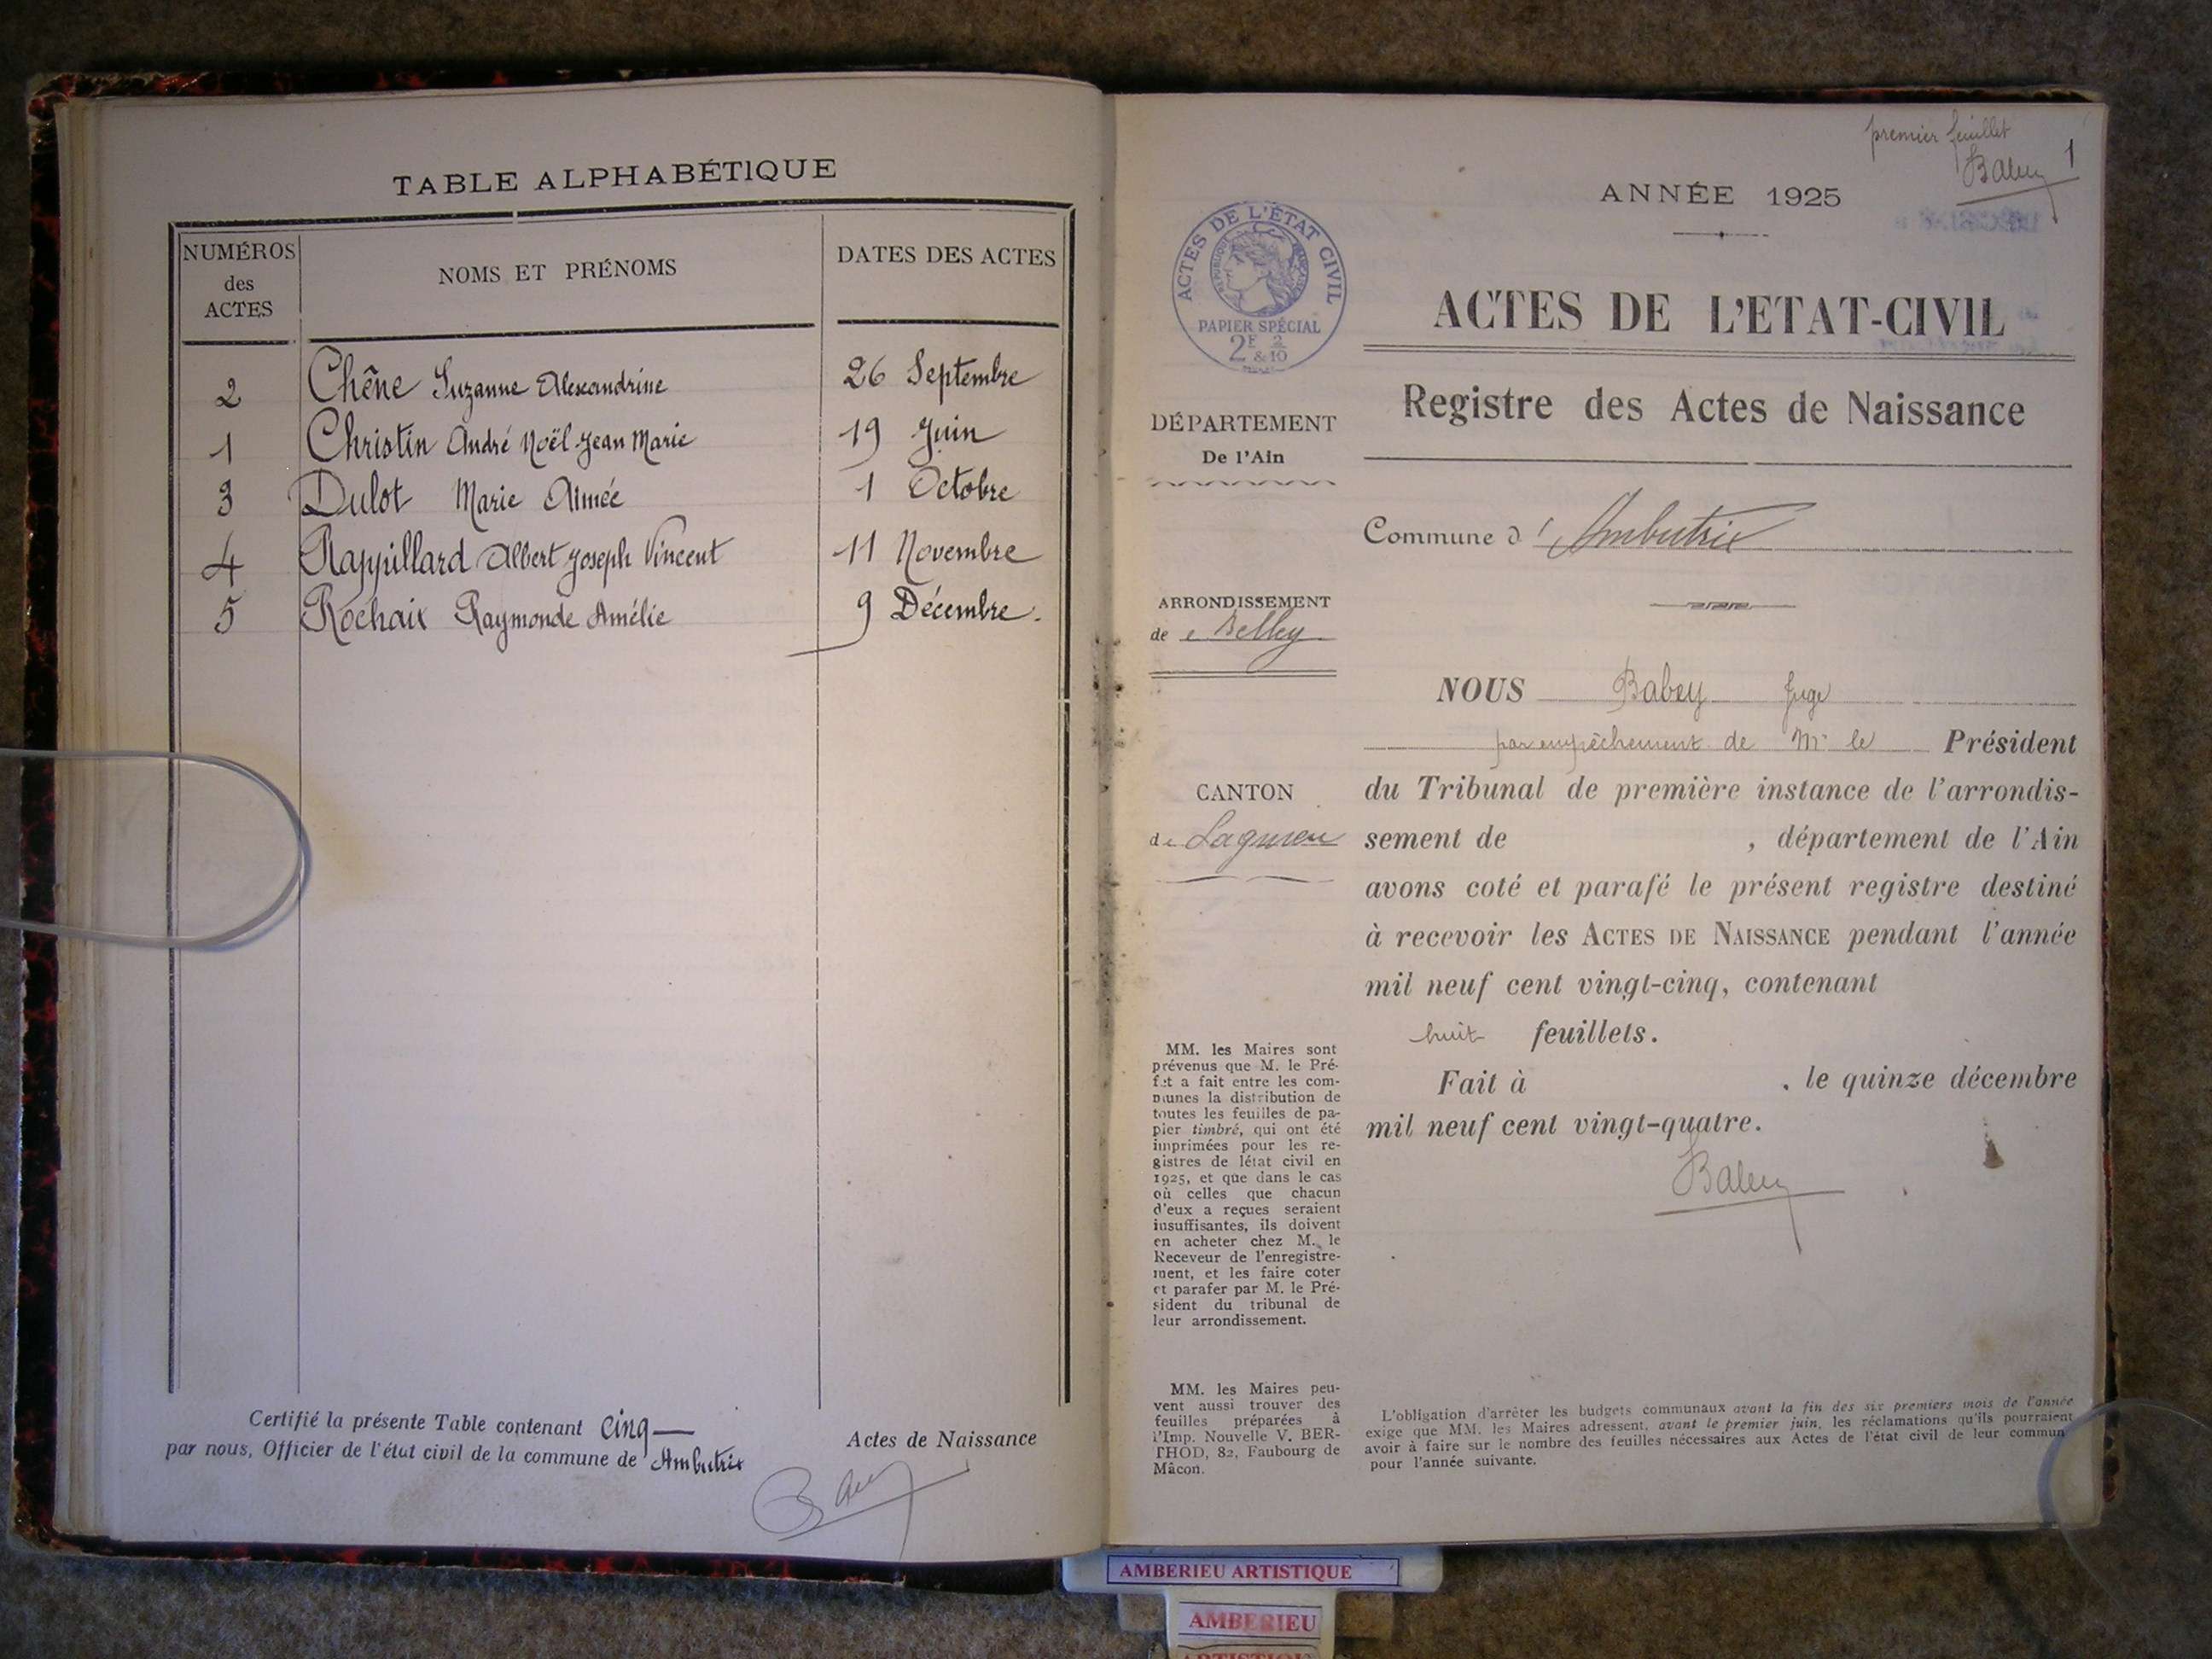 TABLE ALPHABÉTIQUE
NUMÉROS
des
ACTES
NOMS ET PRÉNOMS
DATES DES ACTES
2 Chêne Suzanne Alexandrine 26 Septembre
1 Christin André Noël Jean Marie 19 Juin
3 Dulot Marie Aimée 1 Octobre
4 Rappillard Albert Joseph Vincent 11 Novembre
5 Rochaix Raymonde Amélie 9 Décembre.
Certifié la présente Table contenant cinq
par nous, Officier de l'état civil de la commune de Ambutrix
Actes de Naissance
premier feuillet
Babey
1
ANNÉE 1925
ACTES DE L'ÉTAT CIVIL
RÉPUBLIQUE FRANÇAISE
PAPIER SPÉCIAL
2F 2
& 10
ACTES DE L'ETAT-CIVIL
Registre des Actes de Naissance
DÉPARTEMENT
De l'Ain
Commune d' Ambutrix
ARRONDISSEMENT
de Belley
CANTON
de Lagnieu
NOUS Babey Juge
par empêchement de Mr le Président
du Tribunal de première instance de l'arrondis-
sement de , département de l'Ain
avons coté et parafé le présent registre destiné
à recevoir les ACTES DE NAISSANCE pendant l'année
mil neuf cent vingt-cinq, contenant
huit feuillets.
Fait à , le quinze décembre
mil neuf cent vingt-quatre.
Babey
MM. les Maires sont
prévenus que M. le Pré-
fet a fait entre les com-
munes la distribution de
toutes les feuilles de pa-
pier timbré, qui ont été
imprimées pour les re-
gistres de létat civil en
1925, et que dans le cas
où celles que chacun
d'eux a reçues seraient
insuffisantes, ils doivent
en acheter chez M. le
Receveur de l'enregistre-
ment, et les faire coter
et parafer par M. le Pré-
sident du tribunal de
leur arrondissement.
MM. les Maires peu-
vent aussi trouver des
feuilles préparées à
l'Imp. Nouvelle V. BER-
THOD, 82, Faubourg de
Mâcon.
L'obligation d'arrêter les budgets communaux avant la fin des six premiers mois de l'année
exige que MM. les Maires adressent, avant le premier juin, les réclamations qu'ils pourraient
avoir à faire sur le nombre des feuilles nécessaires aux Actes de l'état civil de leur commun
pour l'année suivante.
AMBERIEU ARTISTIQUE
AMBERIEU
ARTISTIQUE